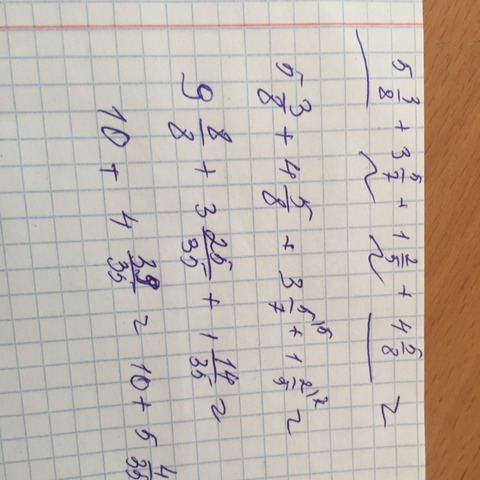 5 3/8 + 3 5/7 + 1 2/5 + 4 5/8 =
5 3/8 + 4 5/8 + 3 5/7 \5 + 1 2/5 \7 =
9 8/8 + 3 25/35 + 1 14/35 =
10 + 4 39/35 = 10 + 5 4/35